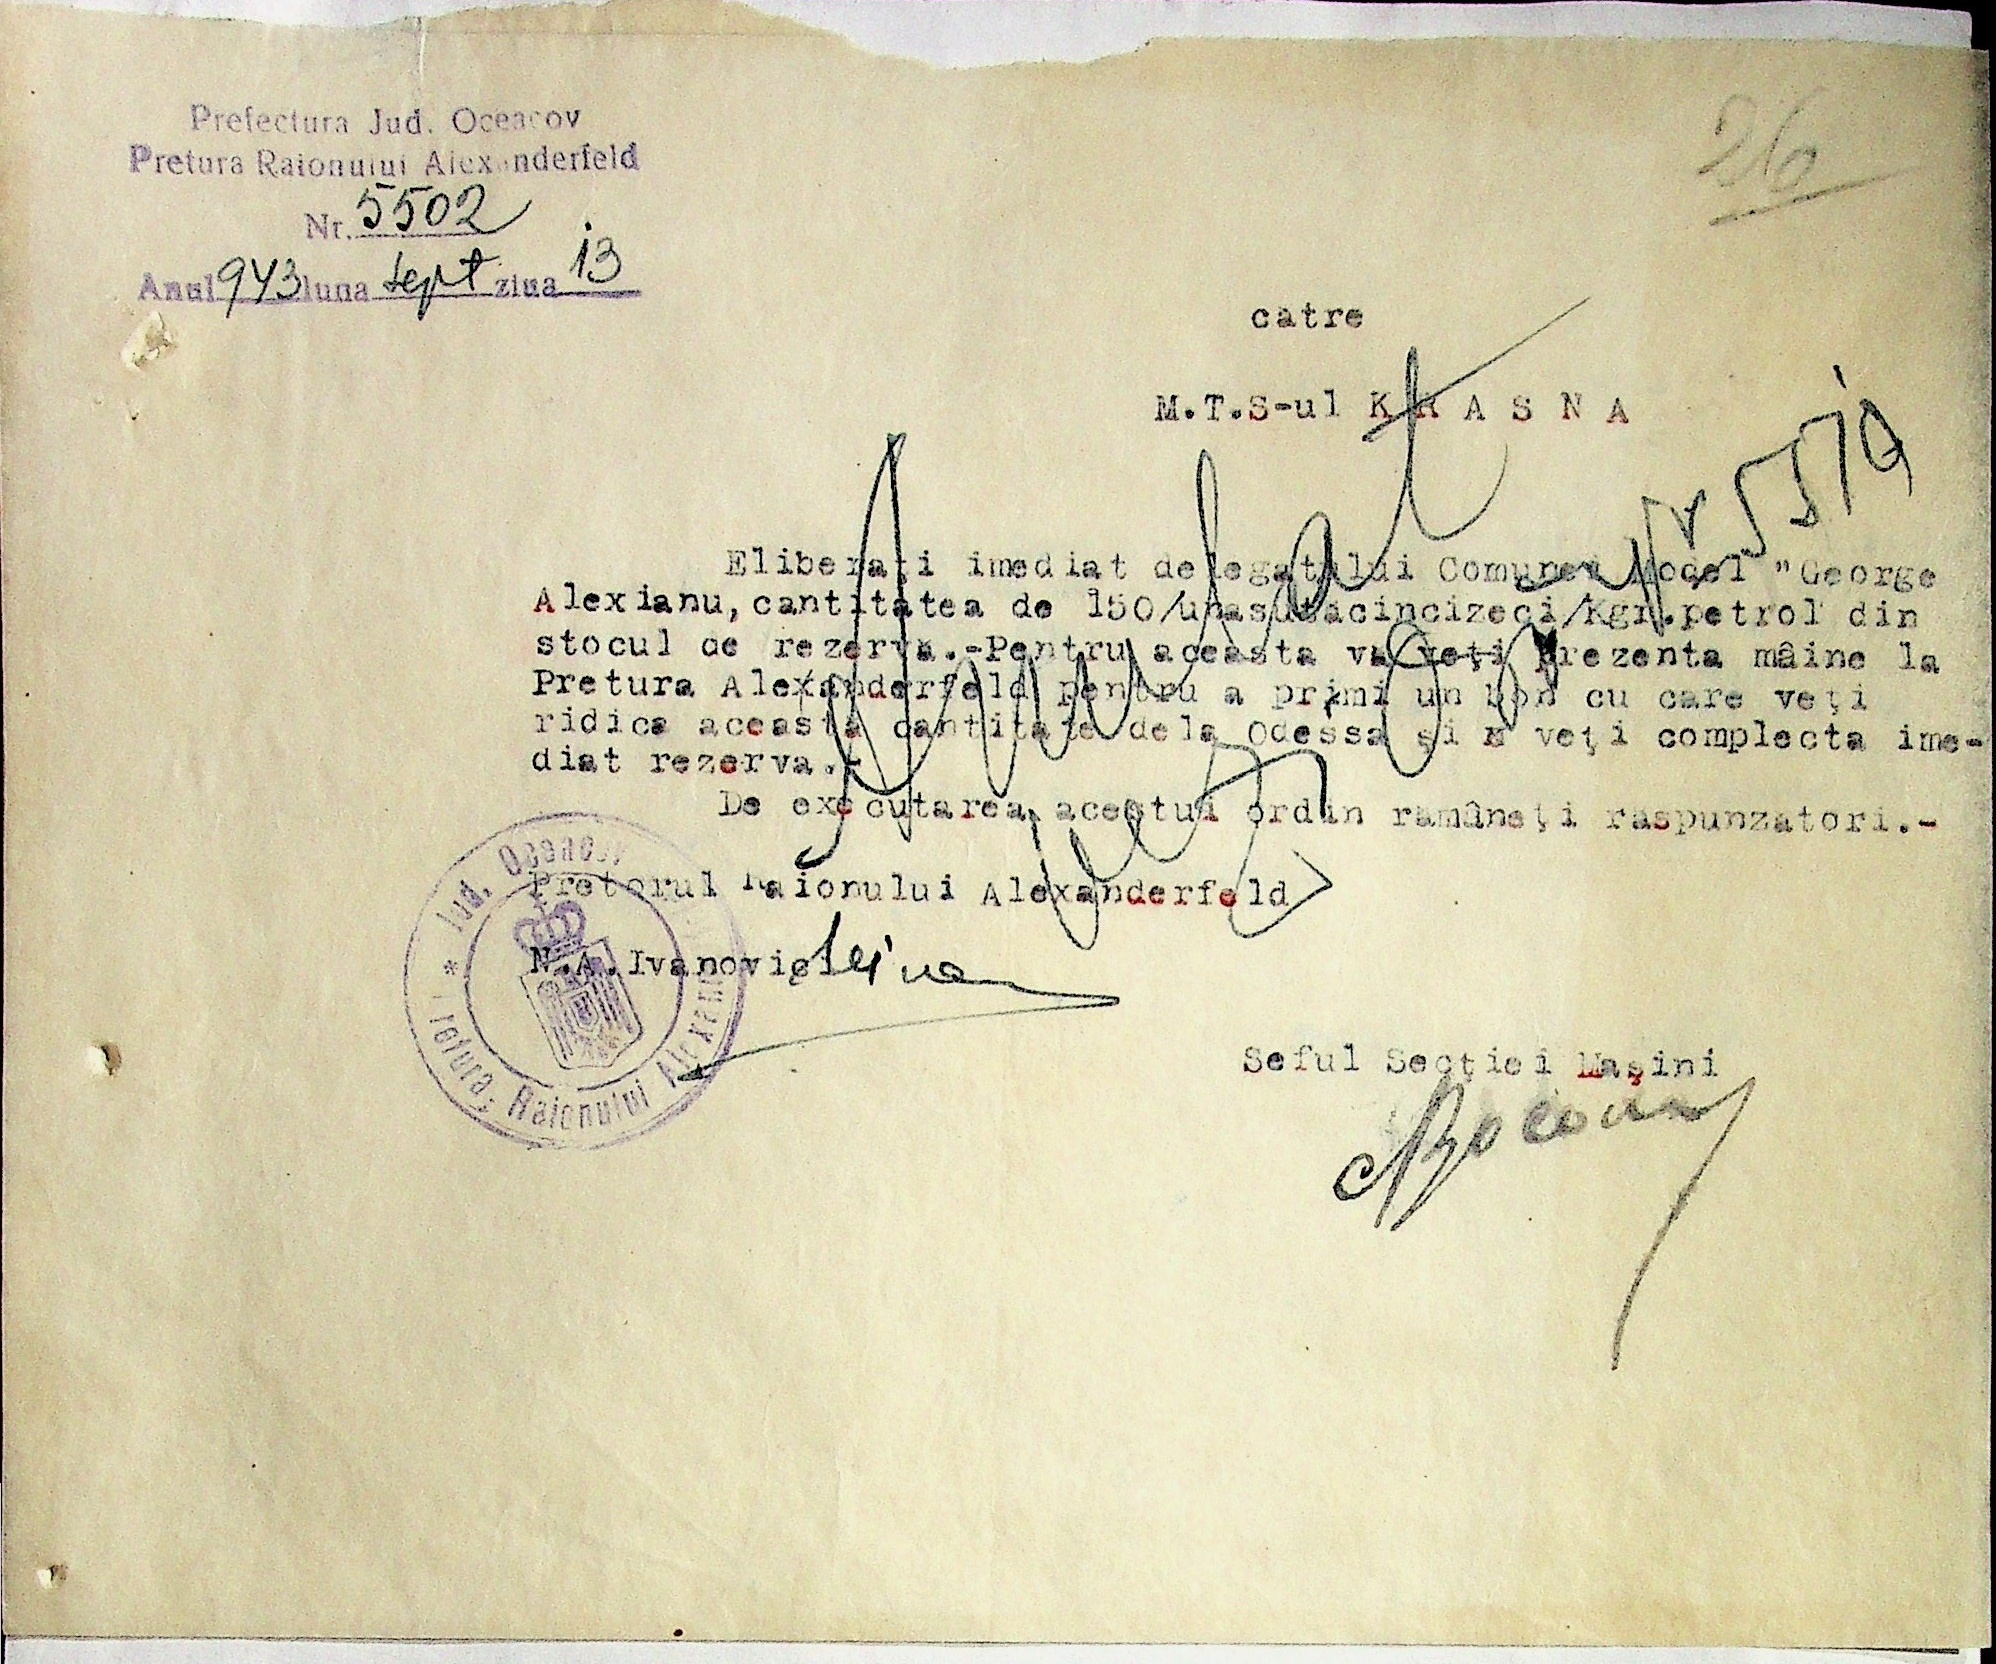 Prefectura Jud. Oceacov
Pretura Raionului Alexanderfeld
Nr. 5502
Anul 943 luna Sept ziua 13
26
catre
M.T.S-ul K R A S N A
Anulat
cu Nr 5519
Eliberaţi imediat delegatului Comunei Model "George
Alexianu,cantitatea de 150/unasutacincizeci/Kgr.petrol din
stocul de rezerva.-Pentru aceasta va veţi prezenta mâine la
Pretura Alexanderfeld pentru a primi un bon cu care veţi
ridica aceasta cantitate dela Odessa şi veţi complecta ime-
diat rezerva.-
De executarea acestui ordin ramâneţi raspunzatori.-
Pretorul Raionului Alexanderfeld
N.A.Ivanovici
Jud. Oceacov * Pretura Raionului
Seful Secţiei Maşini